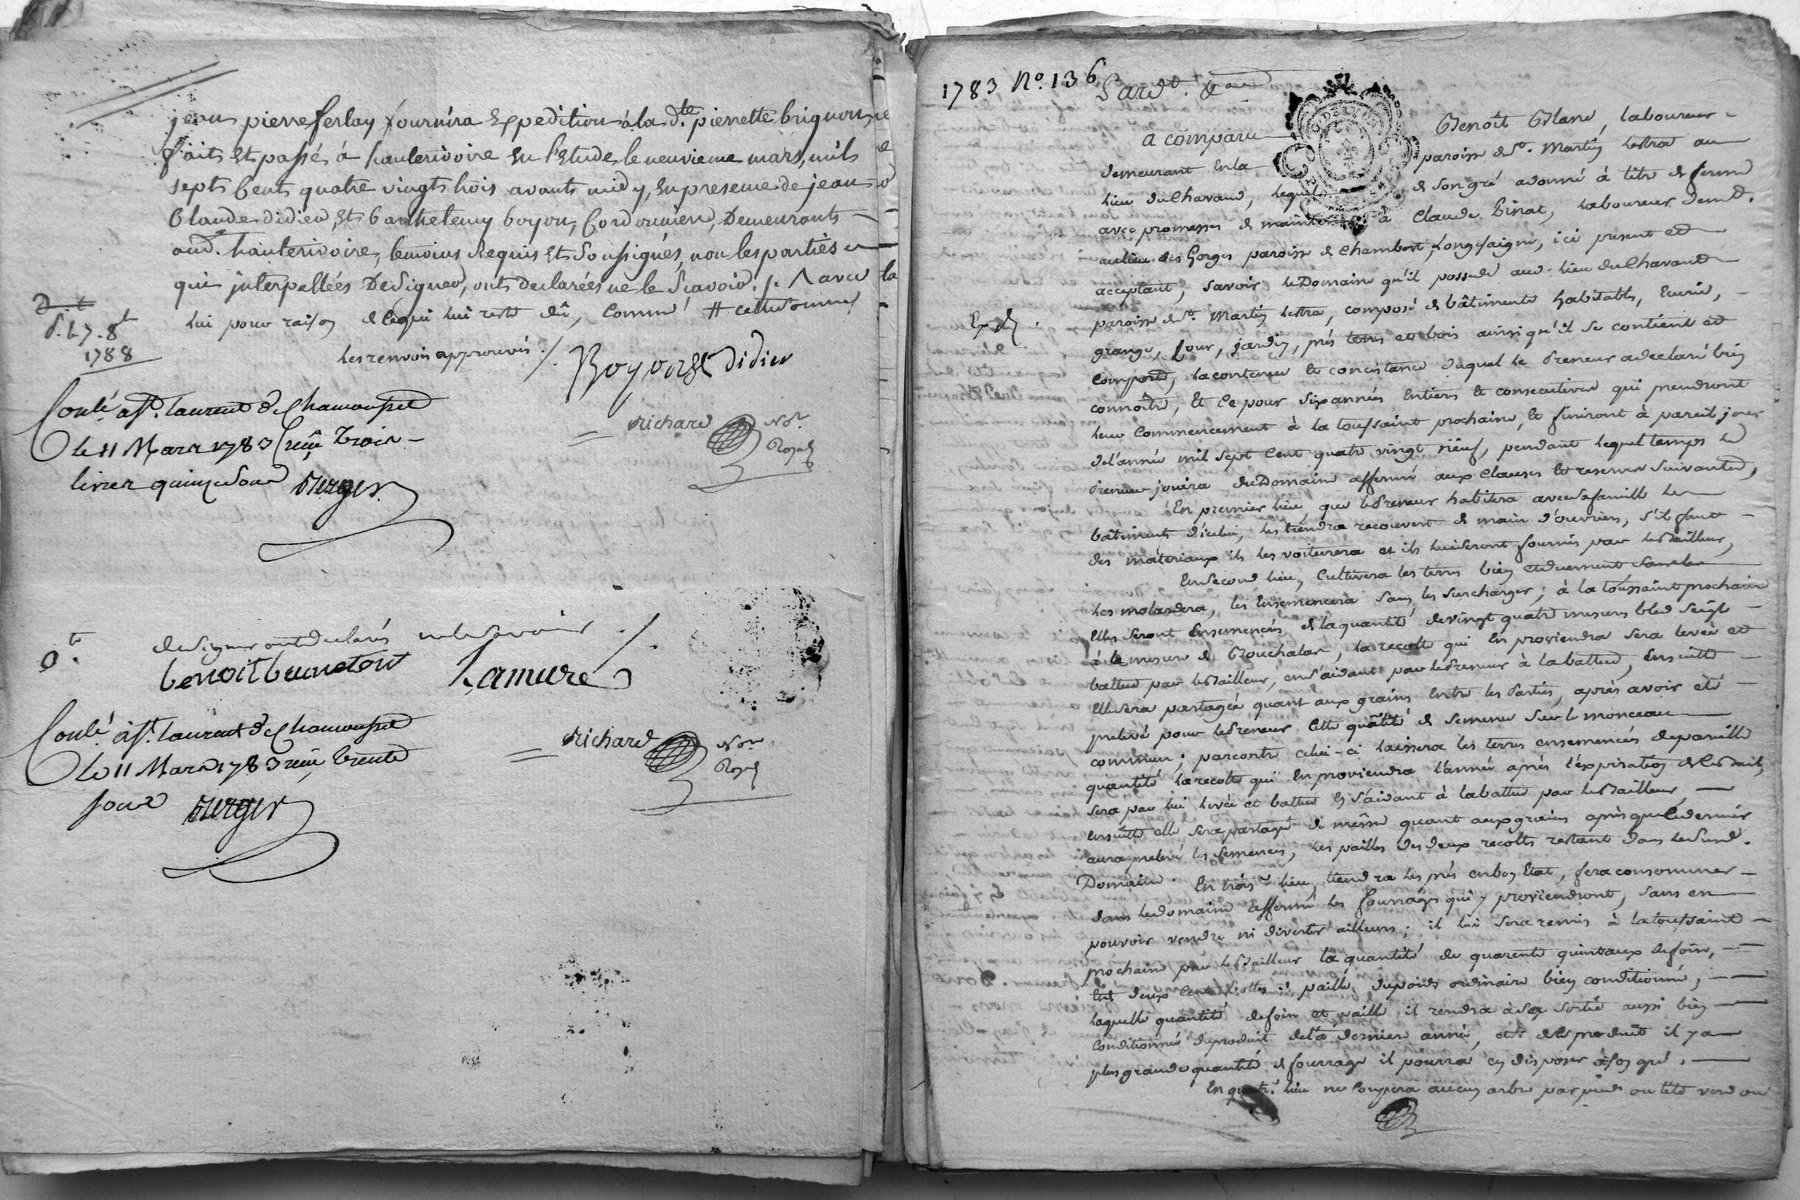 jean pierre ferlay fournira Expedition à la d.te pierrette brignon,
faits Et passés à hauterivoire En l'Etude, le neuvieme mars, mils
septs Cents quatre vingts trois avants midy, En presence de jean
Claude didier, Et barthelemy boyon, Cordonnier, Demeurants
aud.t hauterivoire, temoins Requis Et Soussignés, non les parties
qui jnterpellées De Signer, onts declarées ne le Scavoir ./. avec
lui pour raison de ce qui lui reste dû, comme # cette somme
les renvois approuvés ./.
Boyon
didier
S.t L. 7. 8.t
1788
Richard
No.re
Royal
Conlé à S.t laurent de Chamousset
Le 11 Mars 1783 reçû trois
livres quinze sous
Berger
de Signer ont declarés ne le Savoir ./.
benoit
Lamure
Conlé à S.t laurent de Chamousset
Le 11 Mars 1783 reçû trente
sous
Berger
Richard
No.re
Royal
1783 No. 136
Pard.t &
a comparu Benoît Blanc, laboureur
demeurant En la paroisse de St. Martin Lestra au
lieu du Chavand, lequel de Son gré a donné à titre de ferme
avec promesses de maintenir à Claude Pinat, laboureur dem.t
au lieu des Gorges paroisse de Chambost Longesaigne, ici present et
acceptant, Savoir le Domaine qu'il possede aud. lieu du Chavand
paroisse de St. Martin Lestra, composé de bâtiments habitables, Ecurie,
Exp.
grange, four, jardin, prés terres et bois ainsi qu'il Se contient et
Comporte, la contenue et consistance duquel le Preneur a declaré bien
connoître, Et Ce pour Six années Entieres et consecutives qui prendront
leur Commencement à la toussaint prochaine, et finiront à pareil jour
de l'année mil Sept Cent quatre vingt neuf, pendant lequel temps le
Preneur jouira du Domaine affermé aux Clauses et reserves Suivantes,
En premier lieu, que le Preneur habitera avec Sa famille les
bâtiments d'icelui, les tiendra recouvert de main d'ouvriers, s'il faut
des matériaux il les voiturera et ils lui Seront fournis par le Bailleur,
En Second lieu, Cultivera les terres bien et duement Sans les
les Ensemencera Sans les Surcharger ; à la toussaint prochaine
Elles Seront Ensemencés de la quantité de vingt quatre mesures bled Seigle
à la mesure de la recolte qui En proviendra Sera levée et
battue par le Bailleur, en S'aidant par le Preneur à la battue, Ensuitte
Elle Sera partagée quant aux grains Entre les Parties, après avoir été
prelevé pour le Preneur Cette quantité de Semence Sur le monceau
commun ; par contre celui-ci laissera les terres ensemencées de pareille
quantité la recolte qui En proviendra l'année après l'expiration de le Bail,
Sera par lui levée et battue En S'aidant à la battue par le Bailleur,
ensuitte elle Sera partagé de même quant aux grains après que le dernier
aura prelevé les Semences, les pailles des deux recoltes restant dans le Susd.
Domaine. En trois.e lieu, tiendra les prés en bon Etat, fera consommer
dans le domaine affermé les fourrages qui y proviendront, Sans en
pouvoir vendre ni divertir ailleurs ; il lui Sera remis à la toussaint
prochain par le Bailleur la quantité de quarente quintaux de foin,
Et deux Cent de paille, du poids ordinaire bien conditionné,
laquelle quantité de foin et paille il rendra à Sa Sortie aussi bien
Conditionnée du produit de la derniere année, et Si le produit il y a
plus grande quantité de fourrage il pourra en disposer à Son gré.
En quatr.e lieu ne Coupera aucun arbre par pied ou tête verd ou